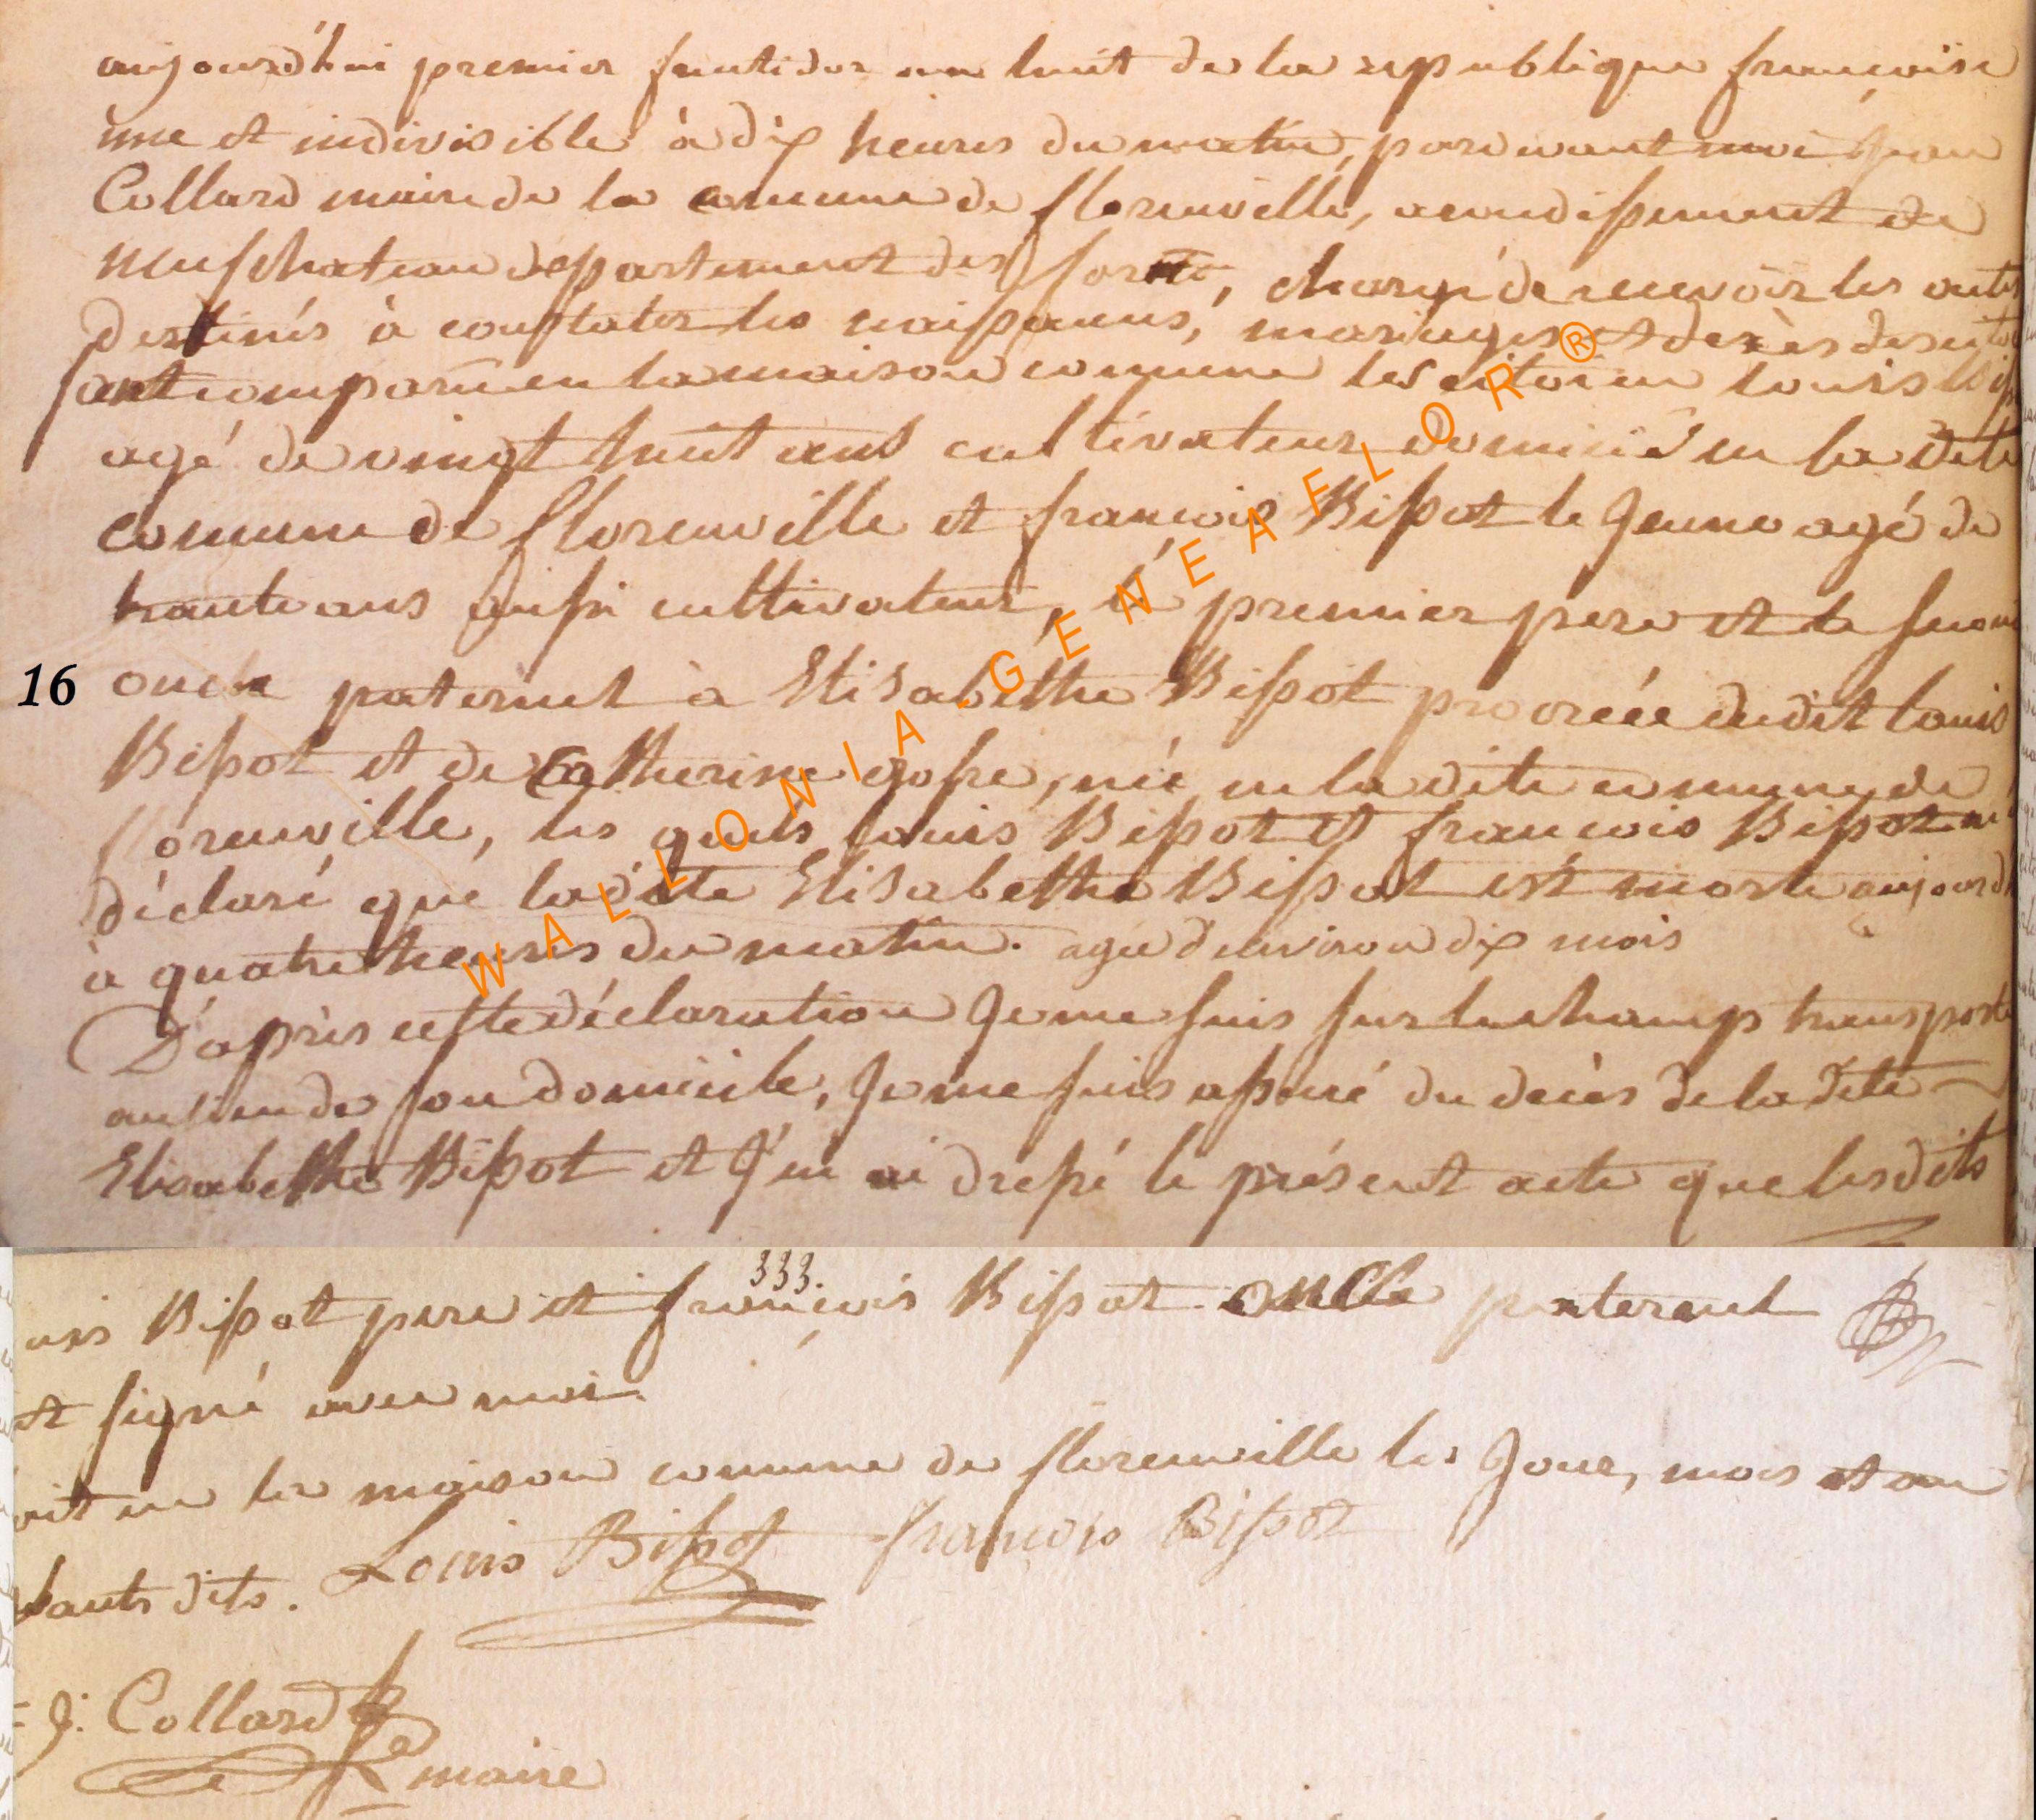 aujourd'hui premier fructidor an huit de la republique françoise
une et indivisible à dix heures du matin, pardevant moi Jean
Collard maire de la comune de florenville, arondissement de
neufchateau departement des forêts, chargé de recevoir les actes
destinés à constater les naissances, mariages et decès des cito
sont comparu en la maison comune les citoien louis Biss
agé de vingt huit ans cultivateur domicilié en la dite
comune de florenville et françois Bissot le Jeune agé de
trante ans aussi cultivateur, le premier pere et le second
16 oncle paternel à Elisabethe Bissot procréée dudit louis
Bissot et de Catherine gofre, née en la dite comune de
florenville, les quels louis Bissot et françois Bissot m'
déclaré que la dite Elisabethe Bissot est morte aujourd'h
à quatre heures du matin. agée d'environ dix mois
D'après cette déclaration Je me suis sur le champ transporté
au lieu de son domicile, Je me suis assuré du decès de la dite
Elisabethe Bissot et J'en ai dressé le présent acte que lesdits
333.
uis Bissot pere et françois Bissot oncle paternel
nt signé avec moi.
ait en la maison comune de florenville les Jour, mois et an
hauts dits. Louis Bissot françois Bissot
J: Collard
maire
WALLONIA-GENEAFLOR®